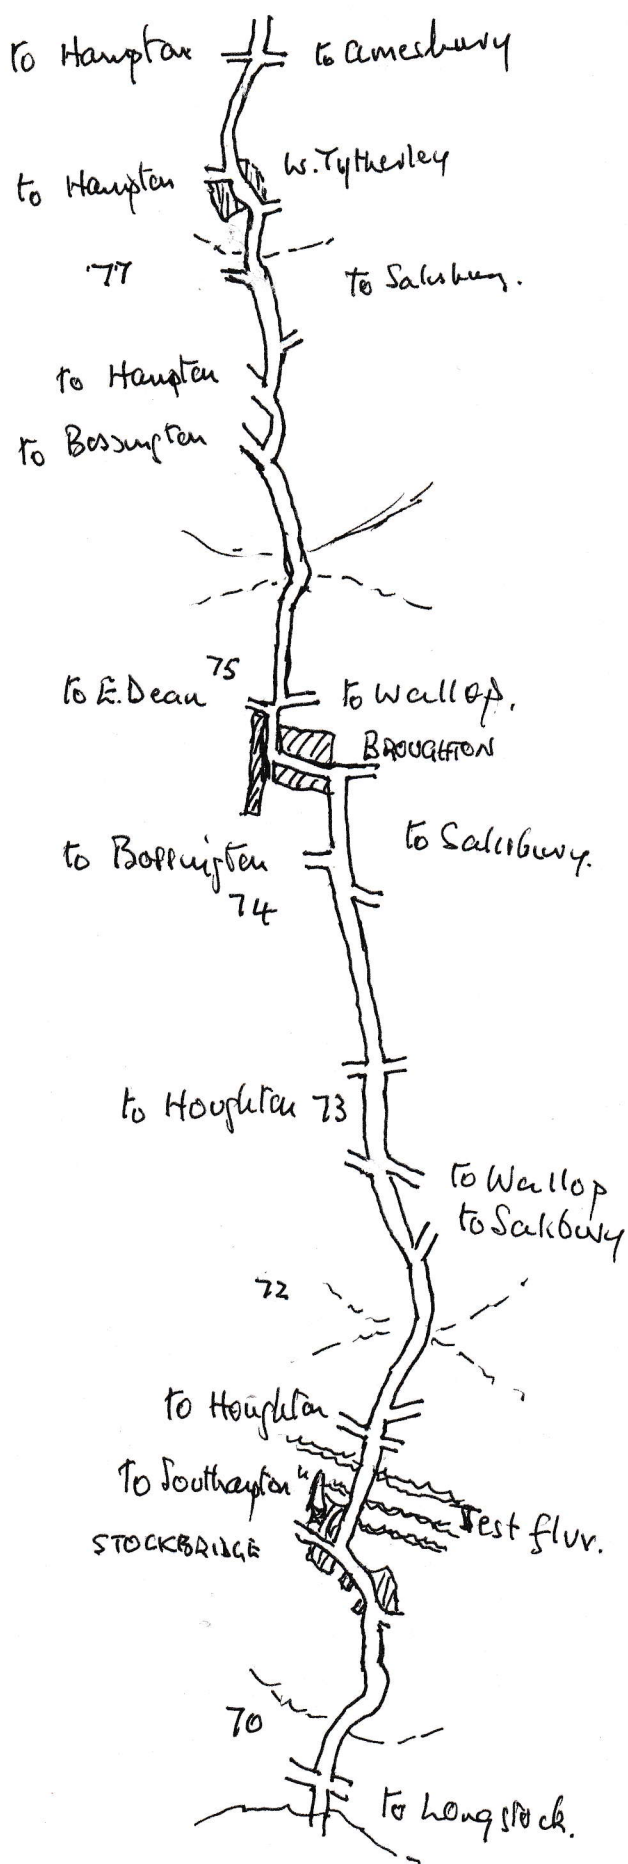 to Hampton
to Amesbury
to Hampton
W. Tytherley
77
to Salisbury.
to Hampton
to Bossington
75
to E. Dean
to Wallop.
BROUGHTON
to Bossington
to Salisbury.
74
to Houghton 73
to Wallop
to Salisbury
72
to Houghton
to Southampton
Test fluv.
STOCKBRIDGE
70
to Longstock.